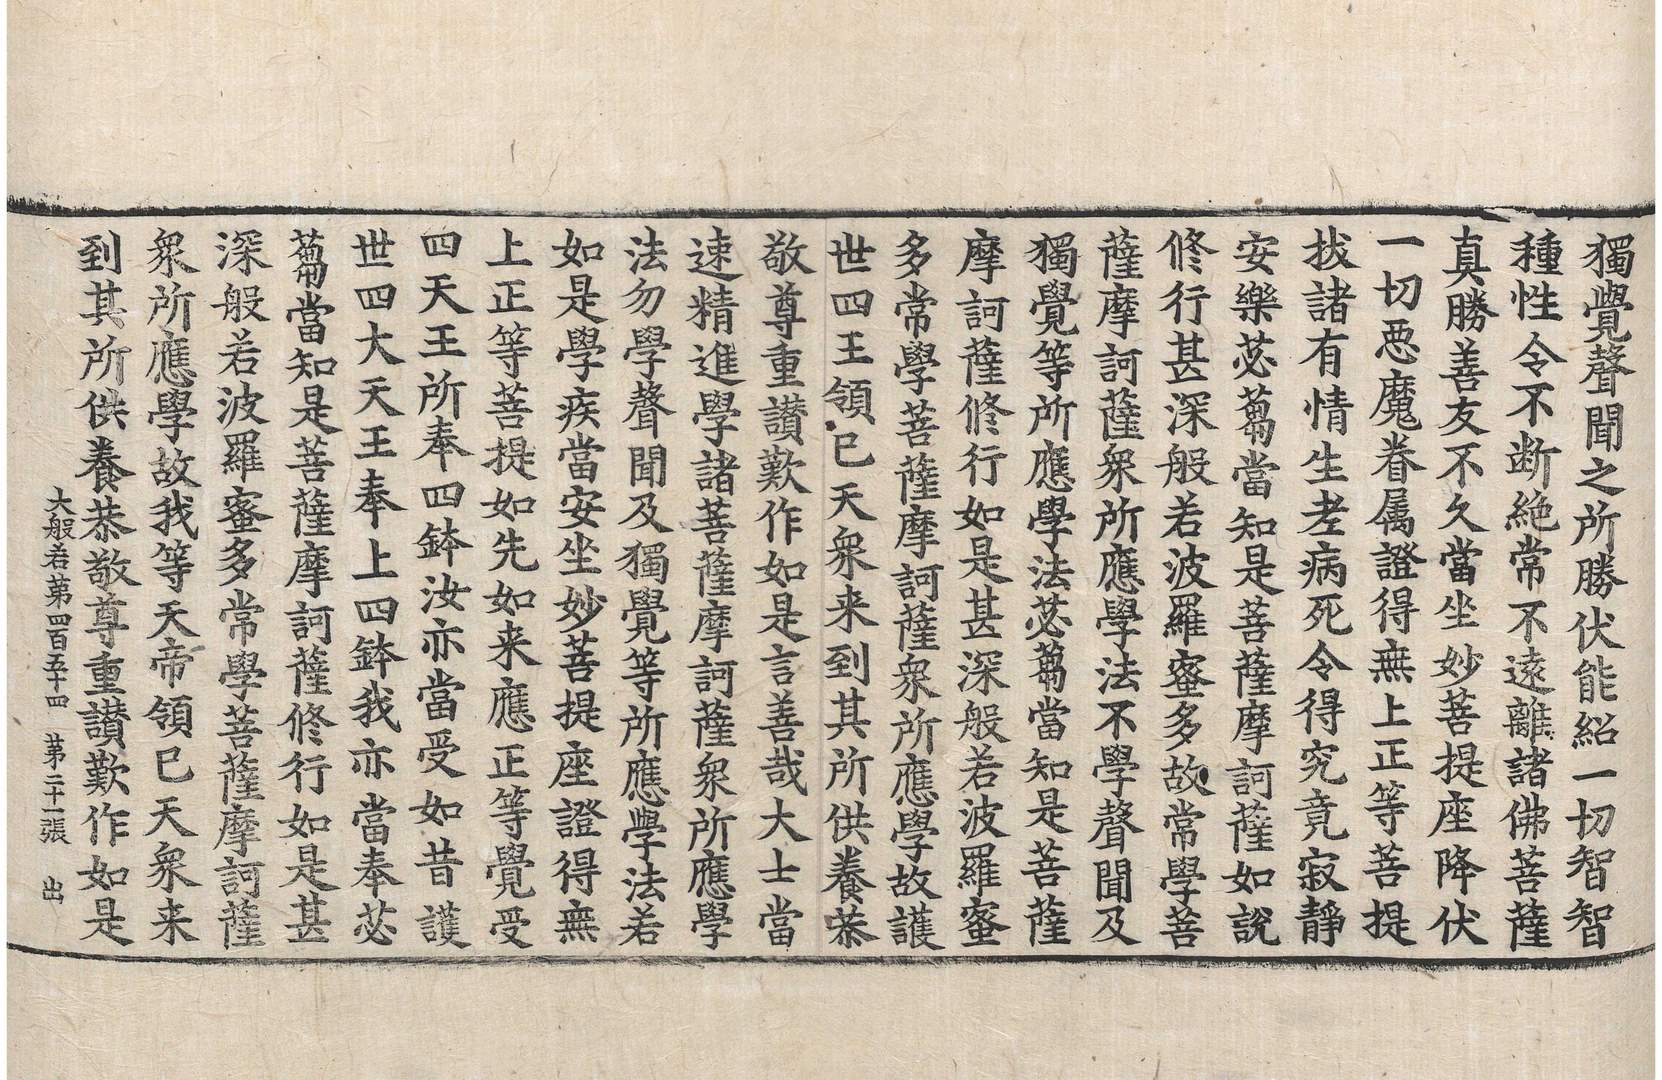 獨覺聲聞之所勝伏能紹一切智智
種性令不断絶常不遠離諸佛菩薩
真勝善友不久當坐妙菩提座降伏
一切惡魔眷属證得無上正等菩提
拔諸有情生老病死令得究竟寂靜
安樂苾蒭當知是菩薩摩訶薩如說
修行甚深般若波羅蜜多故常學菩
薩摩訶薩衆所應學法不學聲聞及
獨覺等所應學法苾蒭當知是菩薩
摩訶薩修行如是甚深般若波羅蜜
多常學菩薩摩訶薩衆所應學故護
世四王領已天衆来到其所供養恭
敬尊重讃歎作如是言善哉大士當
速精進學諸菩薩摩訶薩衆所應學
法勿學聲聞及獨覺等所應學法若
如是學疾當安坐妙菩提座證得無
上正等菩提如先如来應正等覺受
四天王所奉四鉢汝亦當受如昔護
世四大天王奉上四鉢我亦當奉苾
蒭當知是菩薩摩訶薩修行如是甚
深般若波羅蜜多常學菩薩摩訶薩
衆所應學故我等天帝領已天衆来
到其所供養恭敬尊重讃歎作如是
大般若第四百五十四 第二十一張 出